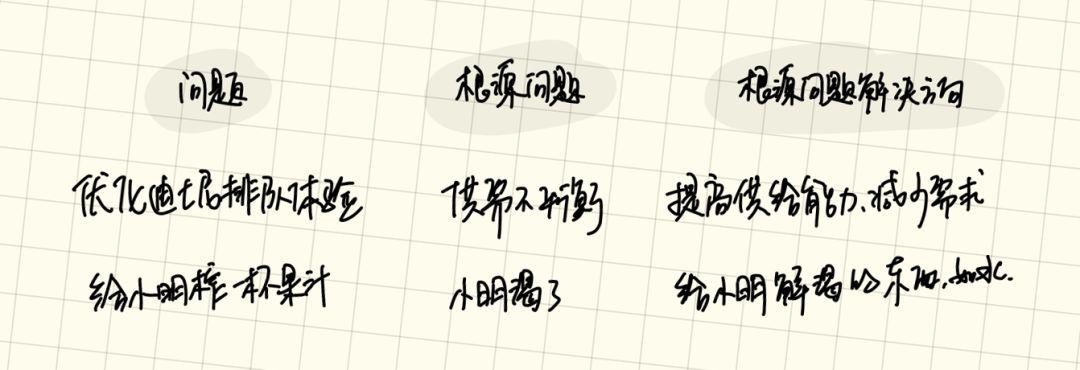 问题 根源问题 根源问题解决方向
优化迪士尼排队体验 供需不平衡 提高供给能力、减少需求
给小明榨一杯果汁 小明渴了 给小明解渴的东西,